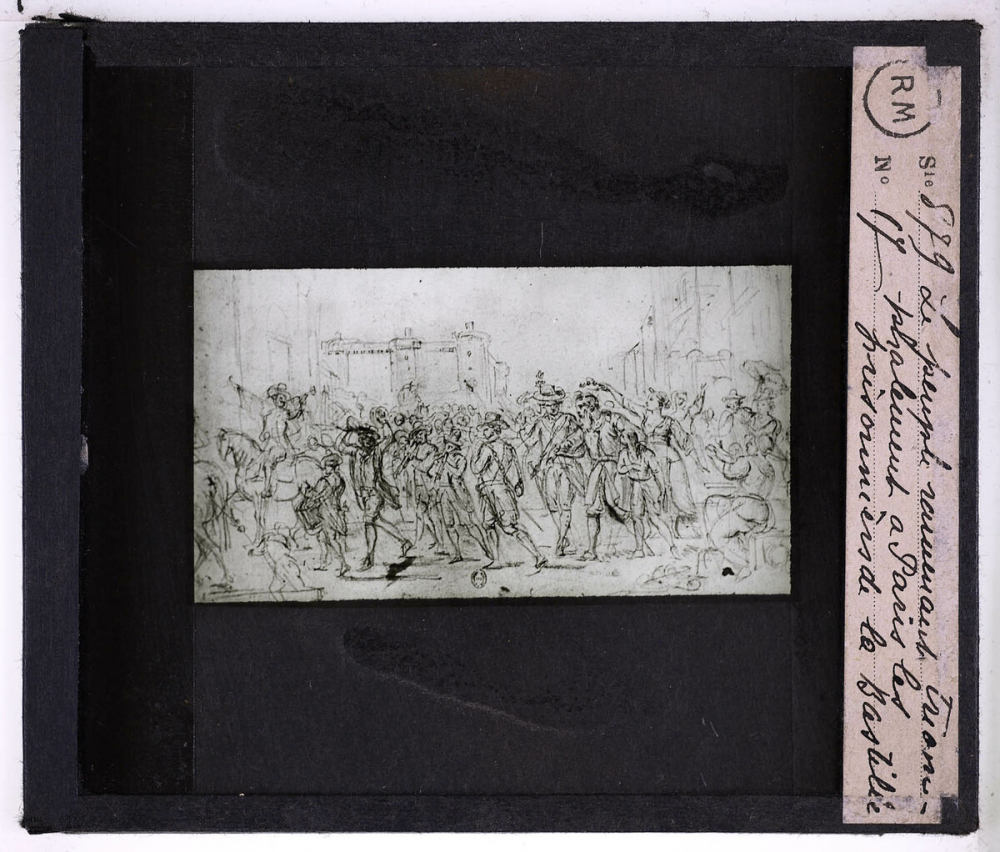 RM
Sie 879 Le peuple ramenant triom-
No 17 phalement à Paris les
prisonniers de la Bastille